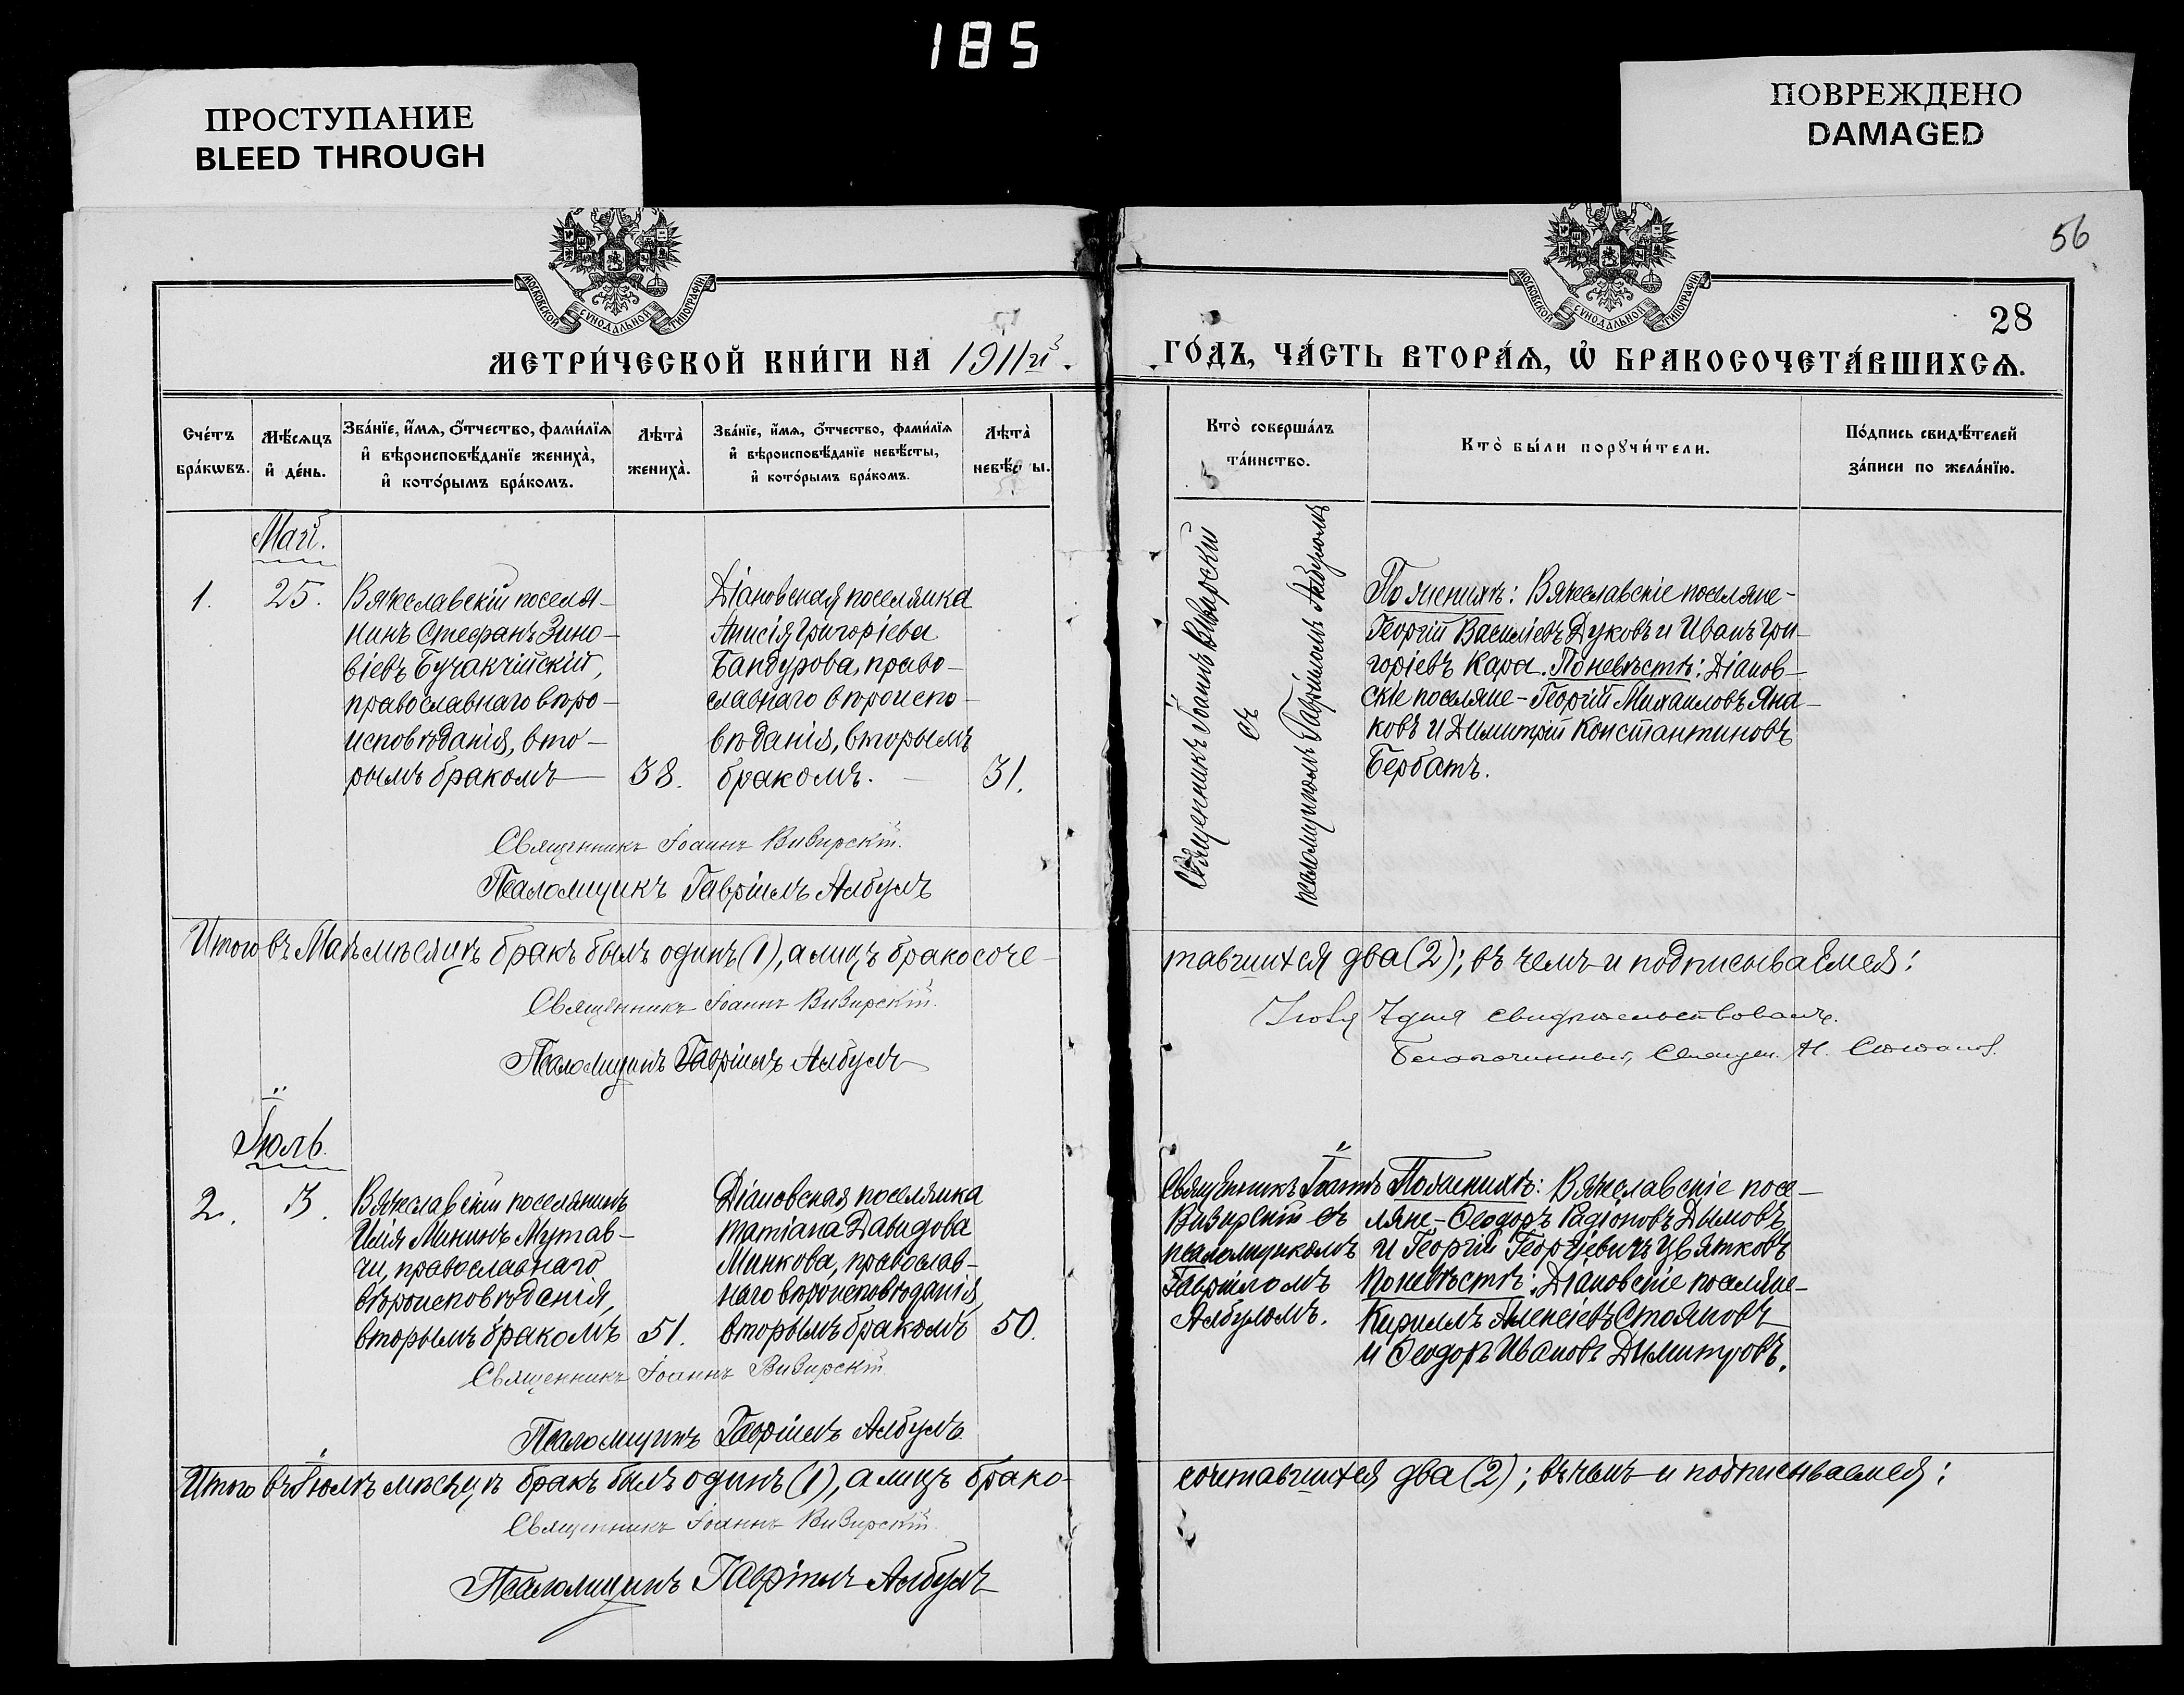 185
ПРОСТУПАНИЕ
BLEED THROUGH
ПОВРЕЖДЕНО
DAMAGED
56
28
МОСКОВСКОЙ СѴНОДАЛЬНОЙ ТИПОГРАФІИ
МОСКОВСКОЙ СѴНОДАЛЬНОЙ ТИПОГРАФІИ
МЕТРИ́ЧЕСКОЙ КНИ́ГИ НА 1911й
ГО́ДЪ, ЧА́СТЬ ВТОРА́Ѧ, Ѡ҆ БРАКОСОЧЕТА́ВШИХСѦ.
Сче́тъ
бра́кѡвъ.
Мѣ́сѧцъ
и҆ де́нь.
Зва́нїе, и҆́мѧ, ѻ҆́тчество, фами́лїѧ
и҆ вѣроисповѣ́данїе жениха̀,
и҆ кото́рымъ бра́комъ.
Лѣта̀
жениха̀.
Зва́нїе, и҆́мѧ, ѻ҆́тчество, фами́лїѧ
и҆ вѣроисповѣ́данїе невѣ́сты,
и҆ кото́рымъ бра́комъ.
Лѣта̀
невѣ́с ы.
Кто̀ соверша́лъ
та́инство.
Кто̀ бы́ли порꙋчи́тели.
По́дпись свидѣ́телей
за́писи по жела́нїю.
Май.
1.
25.
Вячеславскій поселя-
нинъ Стефанъ Зино-
віевъ Бучакчійскій,
православнаго вѣро-
исповѣданія, вто-
рымъ бракомъ
38.
Діановская поселянка
Анисія Григоріева
Бандурова, право-
славнаго вѣроиспо-
вѣданія, вторымъ
бракомъ.
31.
Священникъ Іоаннъ Визирскій
съ
псаломщикомъ Гавріиломъ Албуломъ
По женихѣ: Вячеславскіе поселяне-
Георгій Василіевъ Дуковъ и Иванъ Гри-
горіевъ Кара. По невѣстѣ: Діанов-
скіе поселяне- Георгій Михаиловъ Яна-
ковъ и Димитрій Константиновъ
Бербатъ.
Священникъ Іоаннъ Визирскій.
Псаломщикъ Гавріилъ Албулъ
Итого въ Маѣ мѣсяцѣ бракъ былъ одинъ (1), а лицъ бракосоче-
тавшихся два (2); въ чемъ и подписываемся:
Священникъ Іоаннъ Визирскій.
Псаломщикъ Гавріилъ Албулъ
7 дня свидѣтельствовалъ.
Благочинный, Священ. Н.
Іюль.
2.
3.
Вячеславскій поселянинъ
Илія Мининъ Мутав-
чи, православнаго
вѣроисповѣданія,
вторымъ бракомъ
51.
Діановская поселянка
Татіана Давидова
Минкова, православ-
наго вѣроисповѣданія,
вторымъ бракомъ
50.
Священникъ Іоаннъ
Визирскій съ
псаломщикомъ
Гавріиломъ
Албуломъ.
По женихѣ: Вячеславскіе посе-
ляне- Ѳеодоръ Радіоновъ Дымовъ
и Георгій Георгіевичъ Цвятковъ
По невѣстѣ: Діановскіе поселяне-
Кириллъ Алексіевъ Стояновъ
и Ѳеодоръ Ивановъ Димитровъ.
Священникъ Іоаннъ Визирскій.
Псаломщикъ Гавріилъ Албулъ
Итого въ Іюлѣ мѣсяцѣ бракъ былъ одинъ (1), а лицъ брако-
сочетавшихся два (2); въ чемъ и подписываемся:
Священникъ Іоаннъ Визирскій.
Псаломщикъ Гавріилъ Албулъ